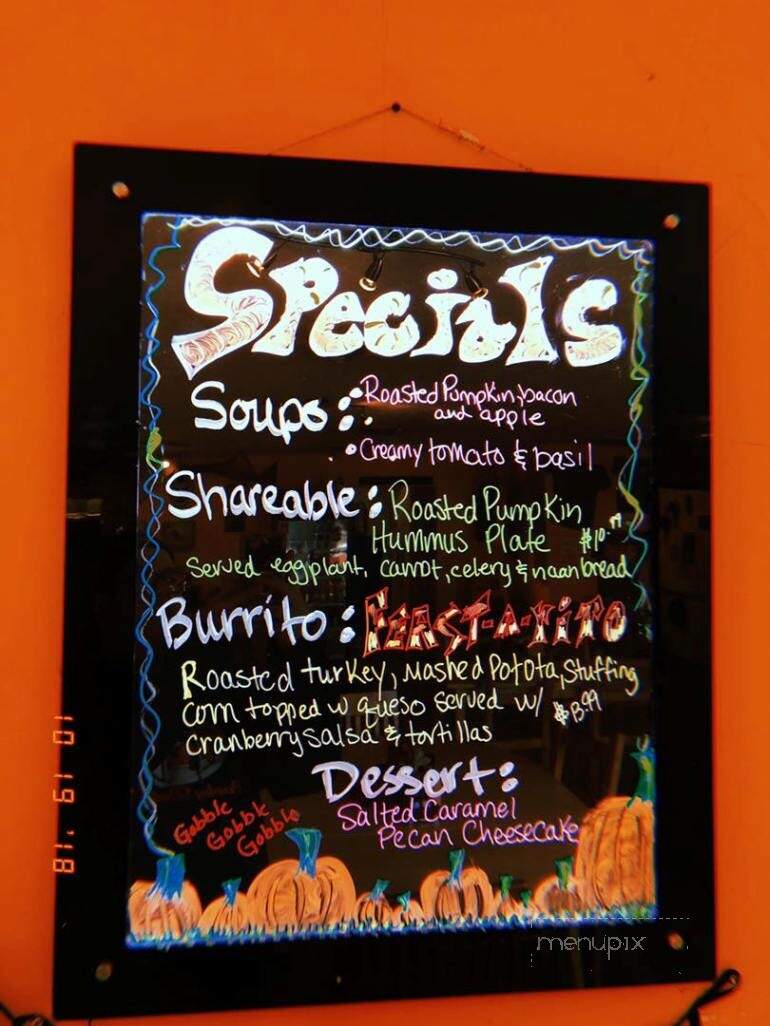 Specials
Soups: • Roasted Pumpkin, bacon
and apple
• Creamy tomato & basil
Shareable: Roasted Pumpkin
Hummus Plate $10.99
Served eggplant, carrot, celery & naan bread
Burrito: FEAST-A-RITO
Roasted turkey, Mashed Potota, Stuffing
Corn topped w queso served w/ $13.99
Cranberry salsa & tortillas
Dessert:
Salted Caramel
Pecan Cheesecake
Gobble
Gobble
Gobble
10 19 '18
menupix